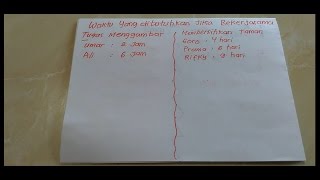 Waktu yang dibutuhkan Jika Bekerjasama
Tugas Menggambar
Umar : 8 Jam
Ali : 6 Jam
Membersihkan Taman
: 4 hari
: 6 hari
Rizky : 9 hari